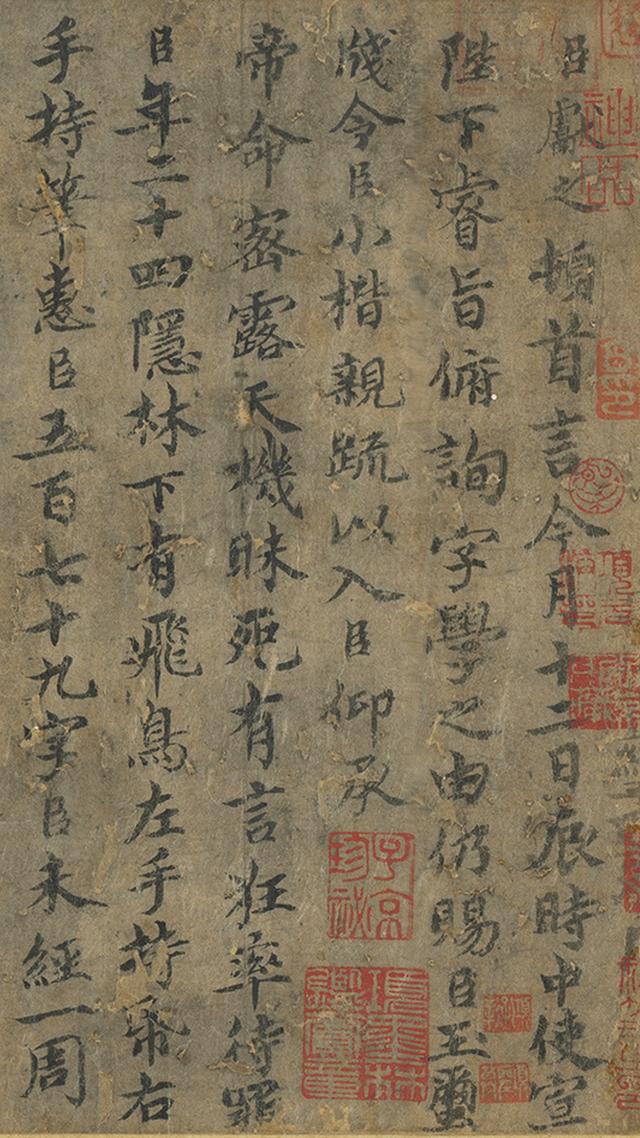 臣獻之頓首言今月十二日辰時中使宣
陛下睿旨俯詢字學之由仍賜臣玉璽
牋令臣小楷親疏以入臣仰承
帝命密露天機昧死有言狂率待罪
臣年二十四隱林下有飛鳥左手持帋右
手持筆惠臣五百七十九字臣未經一周
子京珍祕